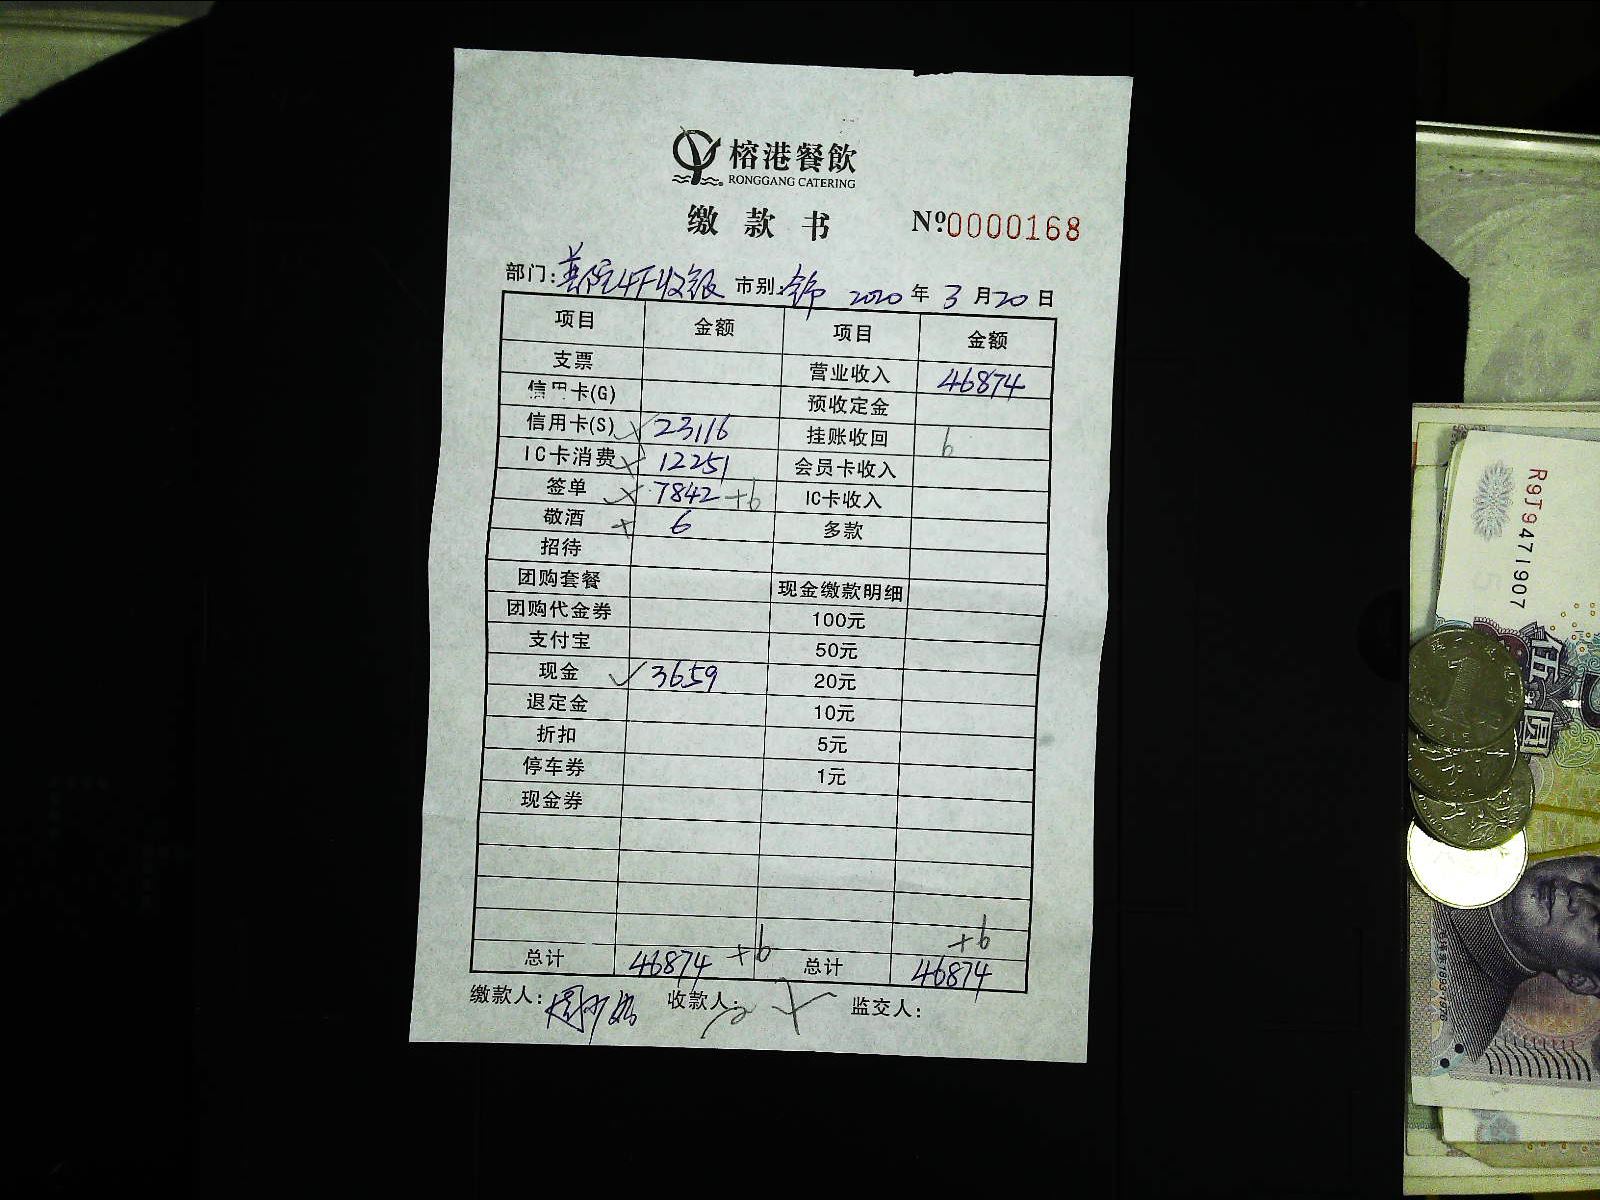 榕港餐飲
RONGGANG CATERING
缴款书 Nº:0000168
部门: 4F收银 市别: 2020年3月20日
项目 金额 项目 金额
支票 营业收入 46874
信用卡(G) 预收定金
信用卡(S) 23116 挂账收回 6
IC卡消费 12251 会员卡收入
签单 7842 +6 IC卡收入
敬酒 6 多款
招待
团购套餐 现金缴款明细
团购代金券 100元
支付宝 50元
现金 3659 20元
退定金 10元
折扣 5元
停车券 1元
现金券
+6
总计 46874 +6 总计 46874
缴款人: 收款人: 监交人:
R9J9471907